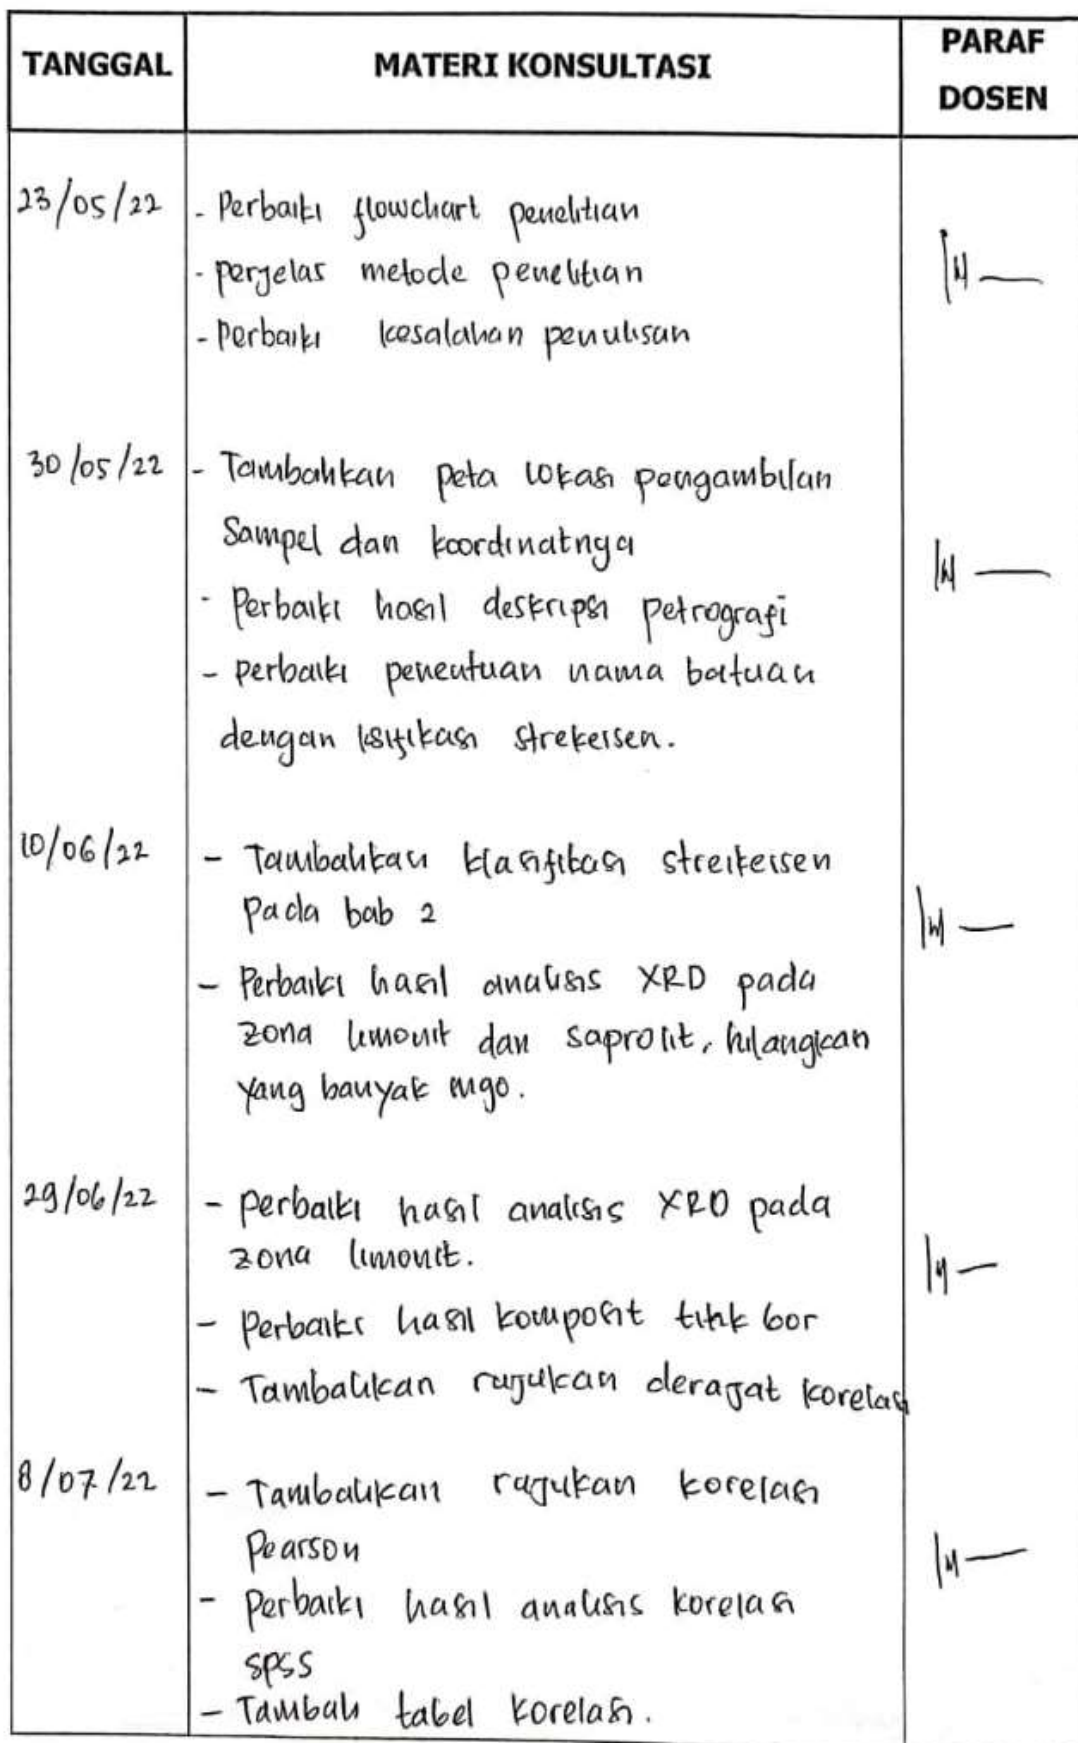 TANGGAL MATERI KONSULTASI PARAF DOSEN
23/05/22 - Perbaiki flowchart penelitian
- perjelas metode penelitian
- Perbaiki kesalahan penulisan
30/05/22 - Tambahkan peta lokasi pengambilan
Sampel dan koordinatnya
- Perbaiki hasil deskripsi petrografi
- perbaiki penentuan nama batuan
dengan klsifikasi strekeisen.
10/06/22 - Tambahkan klasifikasi streikeisen
pada bab 2
- Perbaiki hasil analisis XRD pada
zona limonit dan saprolit, hilangkan
yang banyak mgo.
29/06/22 - perbaiki hasil analisis XRD pada
zona limonit.
- Perbaiki hasil komposit titik bor
- Tambahkan rujukan derajat korelasi
8/07/22 - Tambahkan rujukan korelasi
Pearson
- Perbaiki hasil analisis korelasi
spss
- Tambah tabel korelasi.